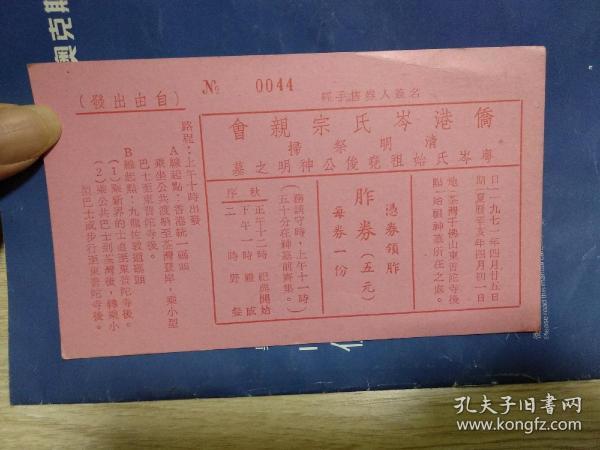 奧克斯
№ 0044
經手售券人簽名
(自由出發)
僑港岑氏宗親會
清明祭掃
粵岑氏始祖堯俊公神明之墓
日期 一九七一年四月廿五日
夏曆辛亥年四月初一日
地點 荃灣千佛山東普陀寺後
始祖神墓所在之處。
憑券領胙
胙券(五元)
每券一份
(務請守時,上午十一時
五十分在神墓前齊集。)
秩序
正午十二時 祀典開始
下午一時 禮成
二時 野餐
路程:上午十時出發
A線起點:香港統一碼頭
乘坐公共渡船至荃灣登岸,乘小型
巴士至東普陀寺後。
B線起點:九龍佐敦道碼頭
(1)乘新界的士直至東普陀寺後。
(2)乘公共巴士到荃灣後,轉乘小
型巴士或步行至東普陀寺後。
孔夫子旧書网
www.kongfz.com